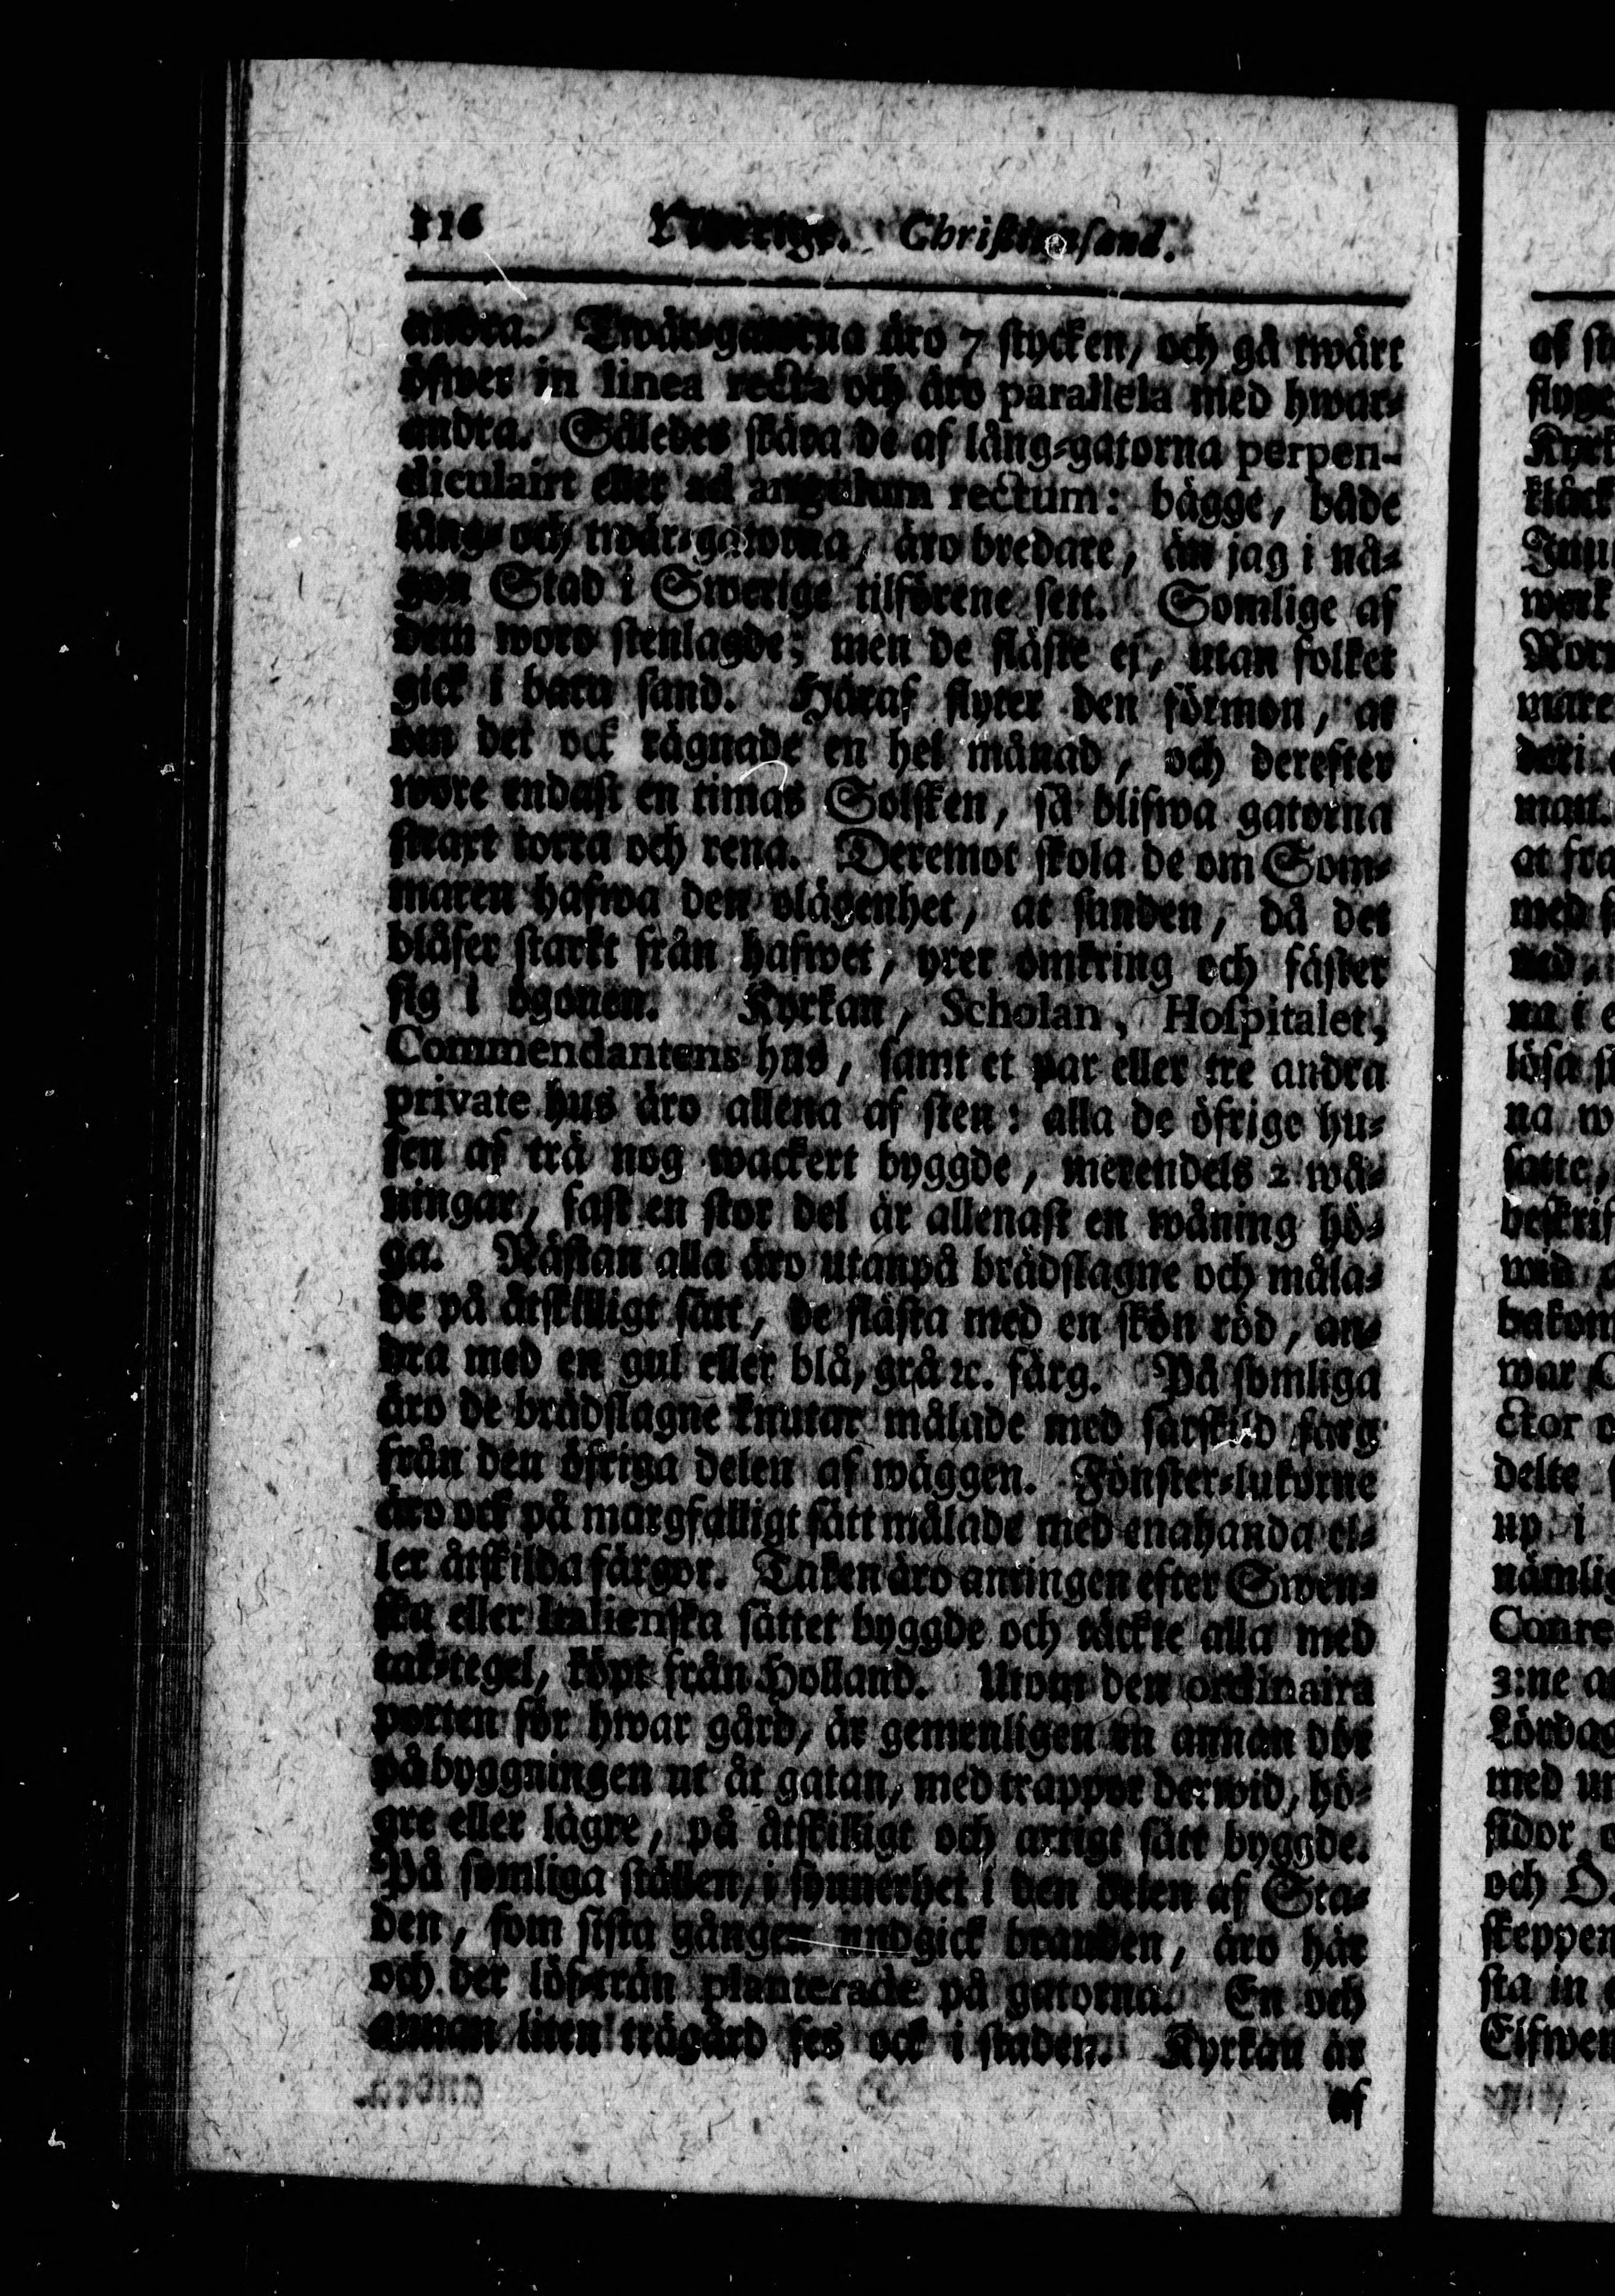 116 Norrige. Christiansand.
andra. Twär-gatorna äro 7 stycken, och gå twärt
öfwer in linea recta och äro parallela med hwar-
andra. Således skära de af lång-gatorna perpen-
diculairt eller ad angulum rectum: bägge, både
lång- och twär-gatorna, äro bredare, än jag i nå-
gon Stad i Swerige tilförene sett. Somlige af
dem woro stenlagde; men de fläste ej, utan folket
gick i bara sand. Häraf flyter den förmon, at
om det ock rägnade en hel månad, och derefter
wore endast en timas Solsken, så blifwa gatorna
straxt torra och rena. Deremot skola de om Som-
maren hafwa den olägenhet, at sanden, då det
blåser starkt från hafwet, yrer omkring och fäster
sig i ögonen. Kyrkan, Scholan, Hospitalet,
Commendantens hus, samt et par eller tre andra
private hus äro allena af sten: alla de öfrige hu-
sen af trä nog wackert byggde, merendels 2 wå-
ningar, fast en stor del är allenast en wåning hö-
ga. Nästan alla äro utanpå brädslagne och måla-
de på åtskilligt sätt, de flästa med en skön röd, an-
dra med en gul eller blå, grå ꝛc. färg. På somliga
äro de brädslagne knutar målade med särskild färg
från den öfriga delen af wäggen. Fönster-lukorne
äro ock på margfalligt sätt målade med enahanda el-
ler åtskilda färgor. Taken äro antingen efter Swen-
ska eller Italienska sättet byggde och täckte alla med
tak-tegel, köpt från Holland. Utom den ordinaira
porten för hwar gård, är gemenligen en annan dör
påbyggningen ut åt gatan, med trappor derwid, hö-
gre eller lägre, på åtskilligt och artigt sätt byggde.
På somliga ställen, i synnerhet i den delen af Sta-
den, som sista gången undgick branden, äro här
och der löf-trän planterade på gatorna. En och
annan liten trägård ses ock i staden. Kyrkan är
af